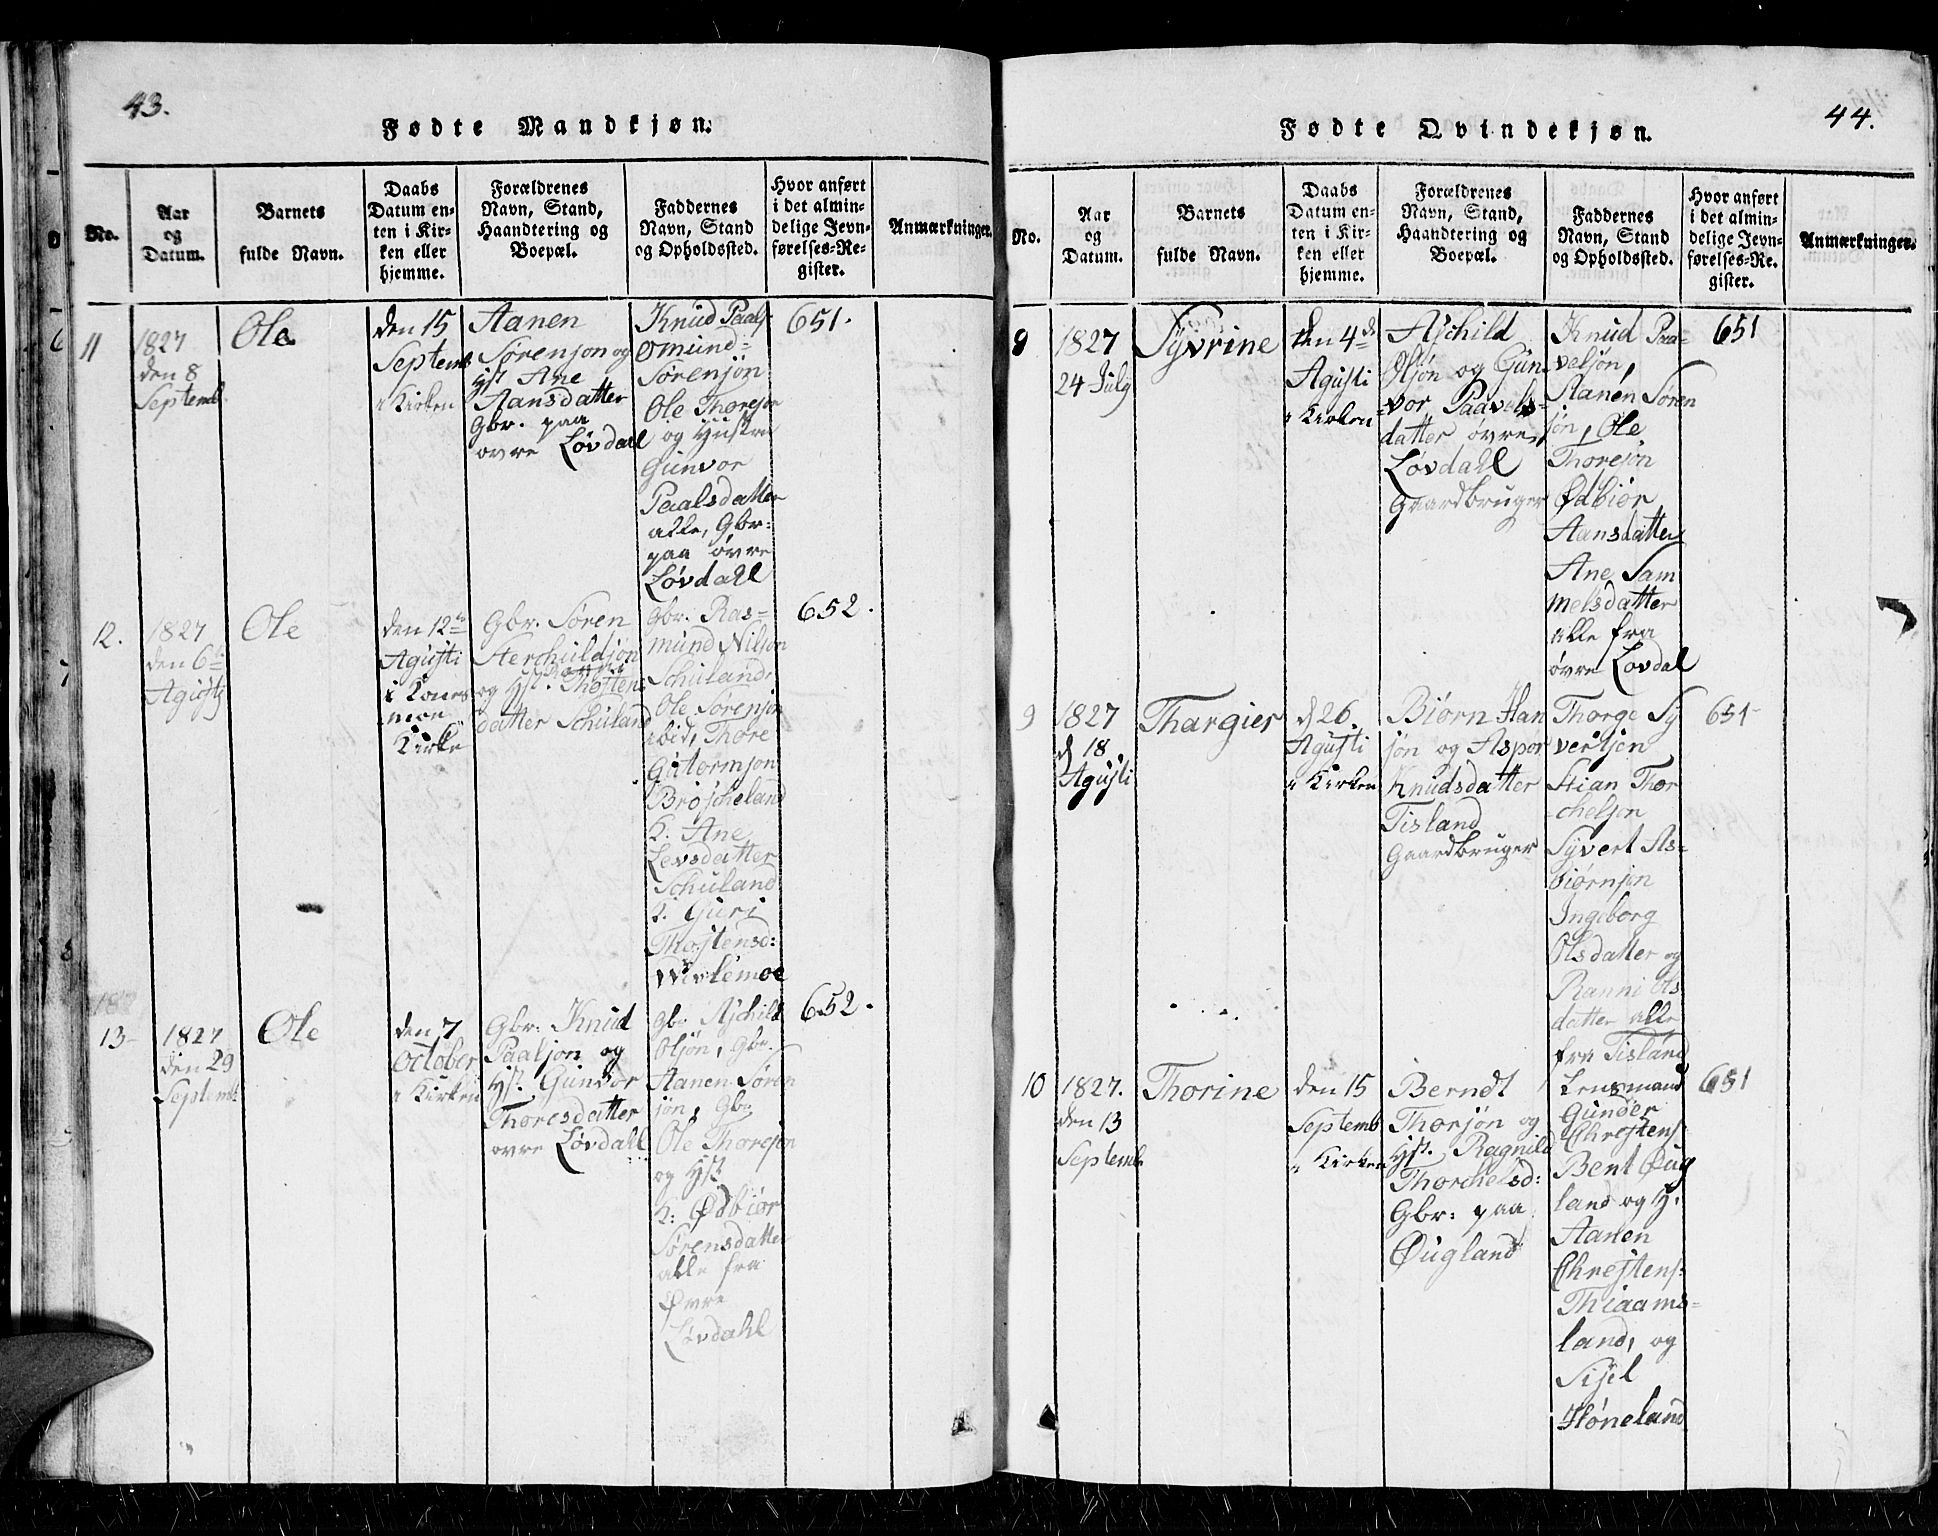 43.
Fødte Mandkjøn.
No.
Aar
og
Datum.
Barnets
fulde Navn.
Daabs
Datum en-
ten i Kir-
ken eller
hjemme.
Forældrenes
Navn, Stand,
Haandtering og
Boepæl.
Faddernes
Navn, Stand
og Opholdssted.
Hvor anført
i det almin-
delige Jevn-
førelses-Re-
gister.
Anmærkninger.
11
1827
den 8
Septemb.
Ole
den 15
Septemb
i Kirken
Aanen
Sørensøn og
Hst. Ane
Aansdatter
Gbr. paa
ovre Løvdahl
Knud Paals.
Omund-
Sørensøn
Ole Thoresøn
og Hustru
Gunvor
Paalsdatter
alle, Gbr:
paa øvre
Løvdahl
651.
12.
1827
den 6te
Agusti
Ole
den 12te
Agusti
i
Kirke
Gbr. Søren
Aerchuldsøn
og Hst. Thostens
datter Schuland
Gbr. Ras-
mund Nilsøn
Schuland,
Ole Sørensøn
ibid, Thore
Gutormsøn
Broscheland
K. Ane
Levsdatter
Schuland
K. Guri
Thostensd:
652.
13-
1827
den 29
Septemb
Ole
den 7
October
i Kirken
Gbr: Knud
Paalsøn og
Hst. Gunvor
Thoresdatter
ovre Løvdahl
Gbr Aschild
Olsøn, Gbr.
Aanen Søren
søn, Gbr
Ole Thoresøn
og Hst.
K: Ødbiør
Sørensdatter
alle fra
Øvre
Løvdahl
652.
44.
Fødte Qvindekjøn.
No.
Aar
og
Datum.
Barnets
fulde Navn.
Daabs
Datum en-
ten i Kir-
ken eller
hjemme.
Forældrenes
Navn, Stand,
Haandtering og
Boepæl.
Faddernes
Navn, Stand
og Opholdssted.
Hvor anført
i det almin-
delige Jevn-
førelses-Re-
gister.
Anmærkninger.
8
1827
24 July
Syvrine
den 4de
Agusti
i Kirken
Aschild
Olsøn og Gun
-vor Paavels-
datter øvre
Løvdahl
Gaardbruger
Knud Paa-
velsøn,
Aanen Søren
søn, Ole
Thoresøn
Ødbiør
Aansdatter
Ane Sam
melsdatter
alle fra
øvre Lovdal
651
9
1827
d 18
Agusti
Thargier
d 26.
Agusti
i Kirken
Biørn Han
søn og Aspor
Knudsdatter
Tisland
Gaardbruger
Thorge Sy
vertsen
Stian Thor
chelsøn
Syvert As-
biørnsøn
Ingeborg
Olsdatter og
Ranni Ols
datter alle
fra Tisland
651-
10
1827.
den 13
Septemb.
Thorine
den 15
Septemb
i Kirken
Berndt
Thorsøn og
Hst. Ragnild
Thorchelsd:
Gbr: paa
Øugland
Lensmand
Gunder
Chrestens:
Bent Øug
land og H.
Aanen
Chrestens:
Thiaams-
land, og
Sisel
Høneland
651